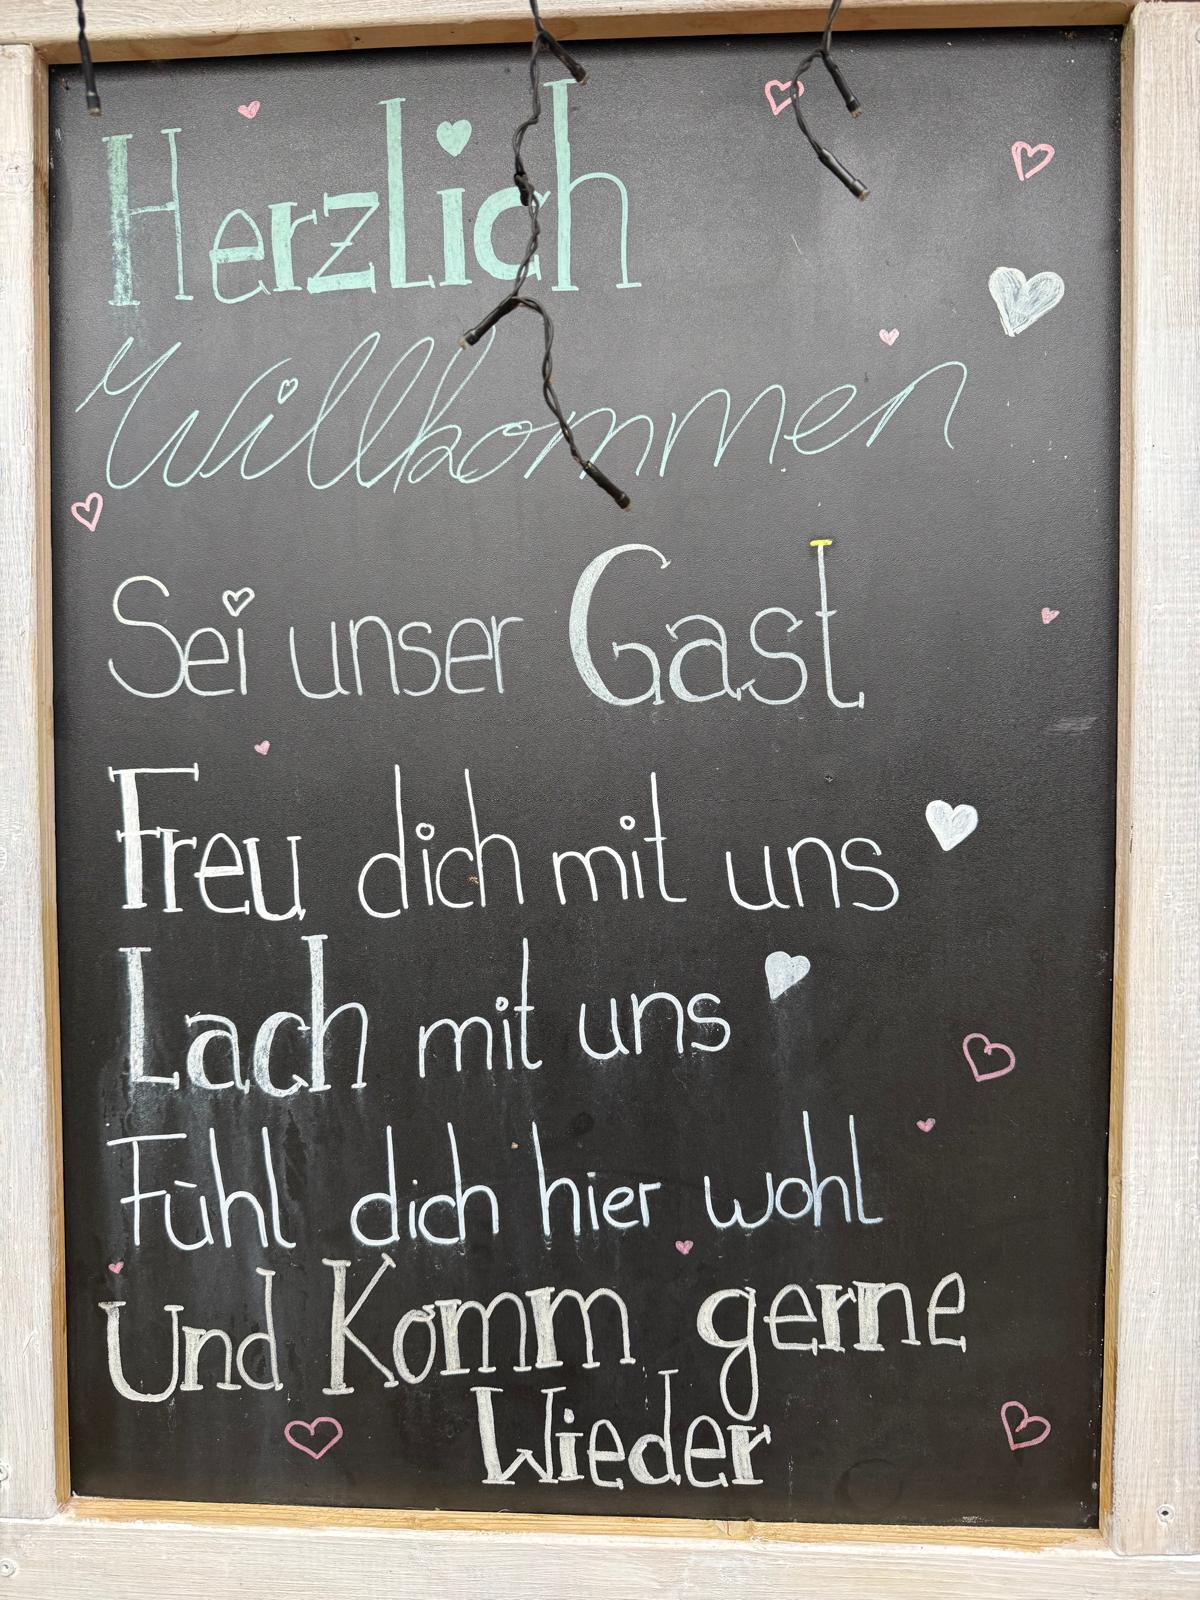 Herzlich
Willkommen
Sei unser Gast
Freu dich mit uns
Lach mit uns
Fühl dich hier wohl
Und Komm gerne
Wieder